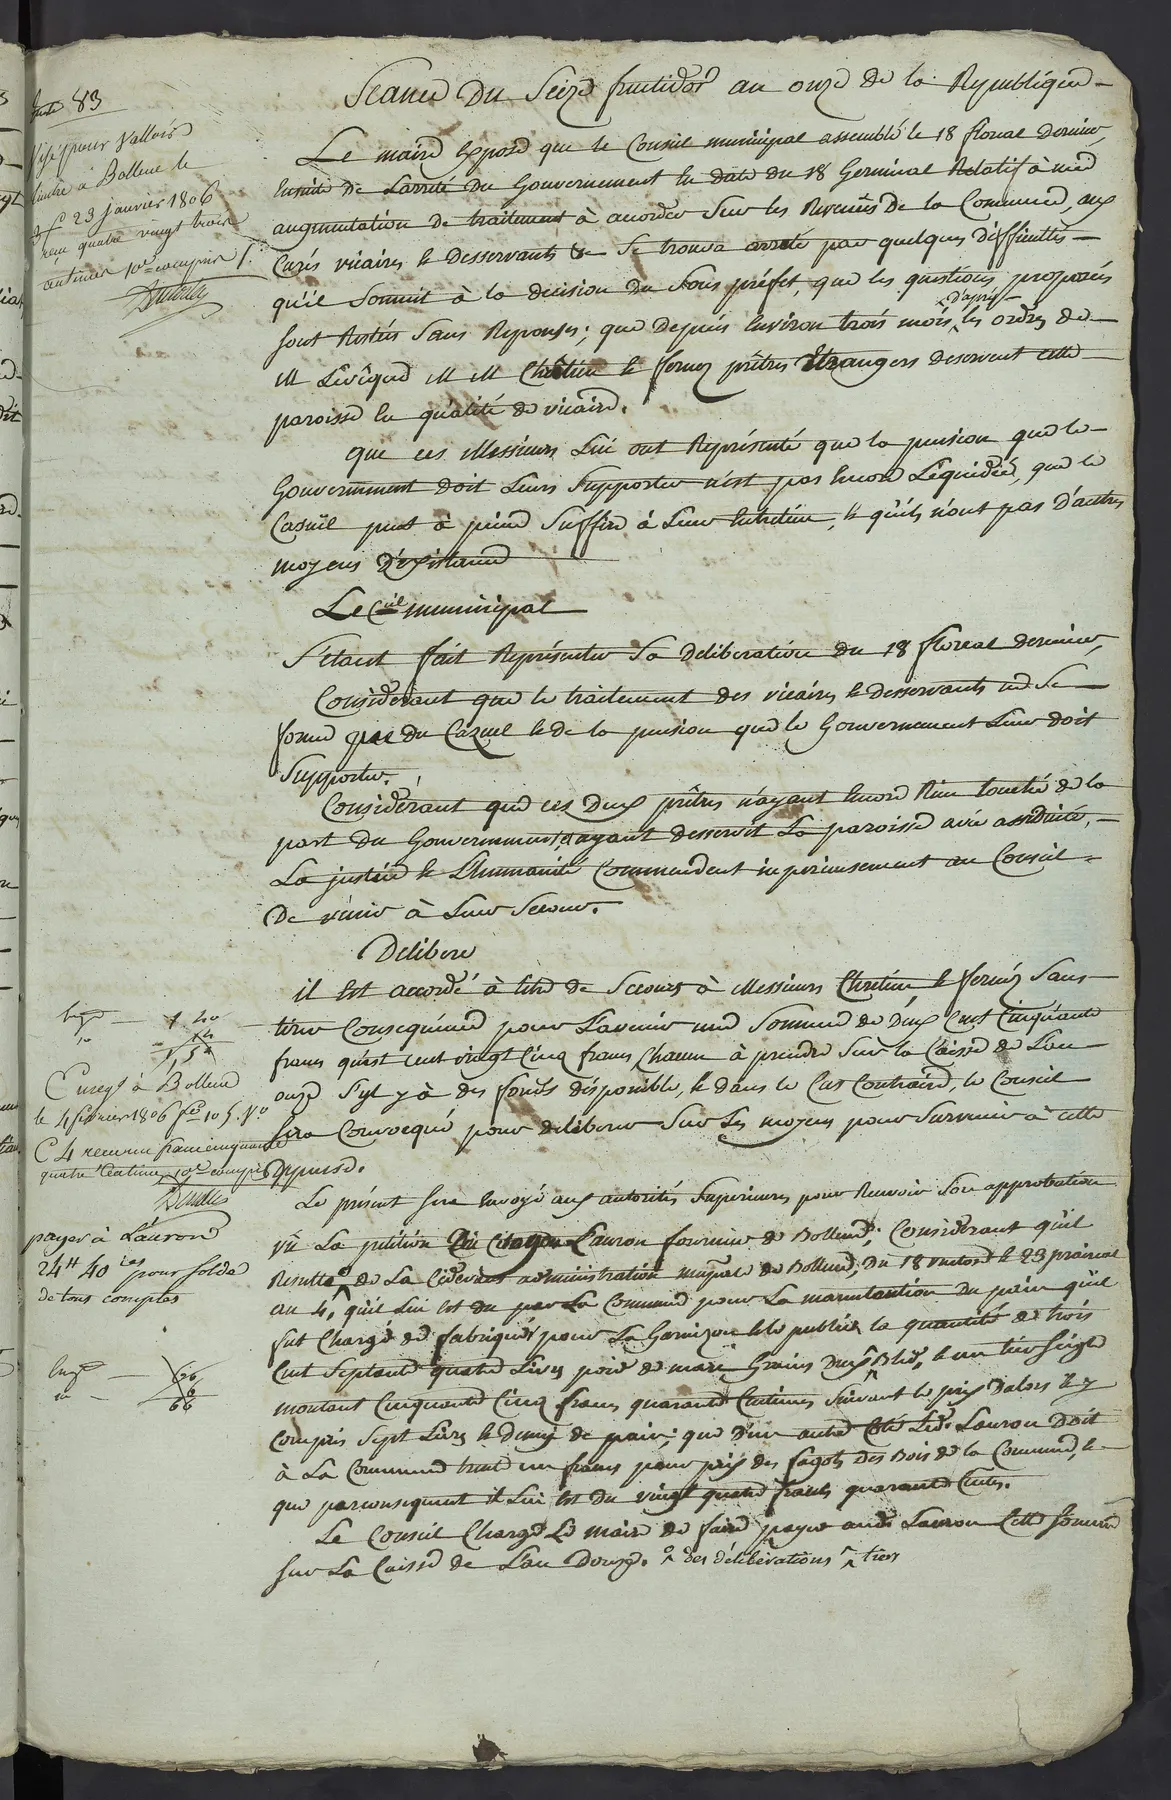 83
Visé pour Valloir
timbre à Bollene le
23 janvier 1806
reçu quatre vingt trois
centimes 10e compris
Seance Du Seize fructidor an onze de la Republique
Le maire expose que le Conseil municipal assemblé le 18 floreal dernier,
Ensuite de L'arrêté Du Gouvernement En date du 18 Germinal Relatif à une
augmentation de traitement à accorder Sur les Revenus de la Commune, aux
Curés vicaires & desservants & Se trouva arreté par quelques difficultés
qu'il Soumit à la decision du Sous préfet, que les questions proposées
Sont Restées Sans Reponses; que Depuis Environ trois mois, d'après les ordres de
M L'évêque M M Chrétien & fornez prêtres Etrangers desservent cette
paroisse En qualité de vicaire.
que ces Messieurs Lui ont Représenté que la pension que le
Gouvernement doit Leurs Supporter n'est pas Encore Liquidée, que le
Casuël peut à peine Suffire à Leur Entretien, & qu'ils n'ont pas d'autres
moyens D'existance
Le Cueil municipal
S'étant fait Représenter Sa deliberation du 18 floreal dernier,
Considerant que le traitement des vicaires & desservants ne Se
forme que du Cazuel & de la pension que le Gouvernement Leur doit
Supporter.
Considérant que ces Deux prêtres n'ayant Encore Rien touché de la
part du Gouvernement, & ayant desservit La paroisse avec assiduité,
La justice & L'humanité Commendent imperieusement au Conseil
De venir à Leur Secour.
Delibere
il Est accordé à titre de Secours à Messieurs Chretien, & fornéz Sans
tirer Consequence pour L'avenir une Somme de Deux Cent Cinquante
francs qu'est cent vingt Cinq francs Chacun à prendre Sur la Caisse de L'an
onze S'yl y à des fonds disponible, & dans le Cas Contraire, le Conseil
Sera Convoqué pour deliberer Sur Les moyens pour Survenir à cette
Depense.
Le présent Sera Envoyé aux autorités Superieures pour Recevoir Son approbation
Vû La petition Du Citoyen Lauron fournier de Bollene; Considerant qu'il
Resulte de La Cidevant administration mupale de Bollene, Du 18 & le 23 prairial
an 4, qu'il Lui Est du par La Commune pour La manutention Du pain qu'il
fut Chargé de fabriquer pour La Garnizon le public la quantité de trois
Cent Septante quatre Livres poid de marc Grains Deux Bled, & un tier Seigle
montant Cinquante Cinq francs quarante Centimes Suivant le prix D'alors & y
Compris Sept Livres & demy de pain; que D'un autre Coté Led. Lauron Doit
à La Commune trente un francs pour prix des fagots des Bois de la Commune, &
que parconsequent il Lui Est du vingt quatre francs quarante Cents.
Le Conseil Charge Le maire de faire payer aud. Lauron Cette Somme
Sur La Caisse de L'an Douze. des délibérations tiers
Enregt à Bollene
le 4 fevrier 1806 fo 105. Vo
C 4 reçu un franc cinquante
quatre Centimes, 10e compris
payer à Lauron
24tt 40 ces pour Solde
de tous comptes
66